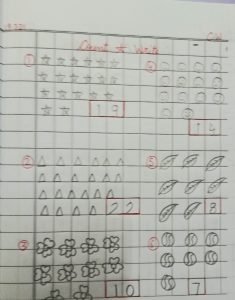 C.W
Count & Write
① 19
④ 14
② 22
⑤ 8
③ 10
⑥ 7